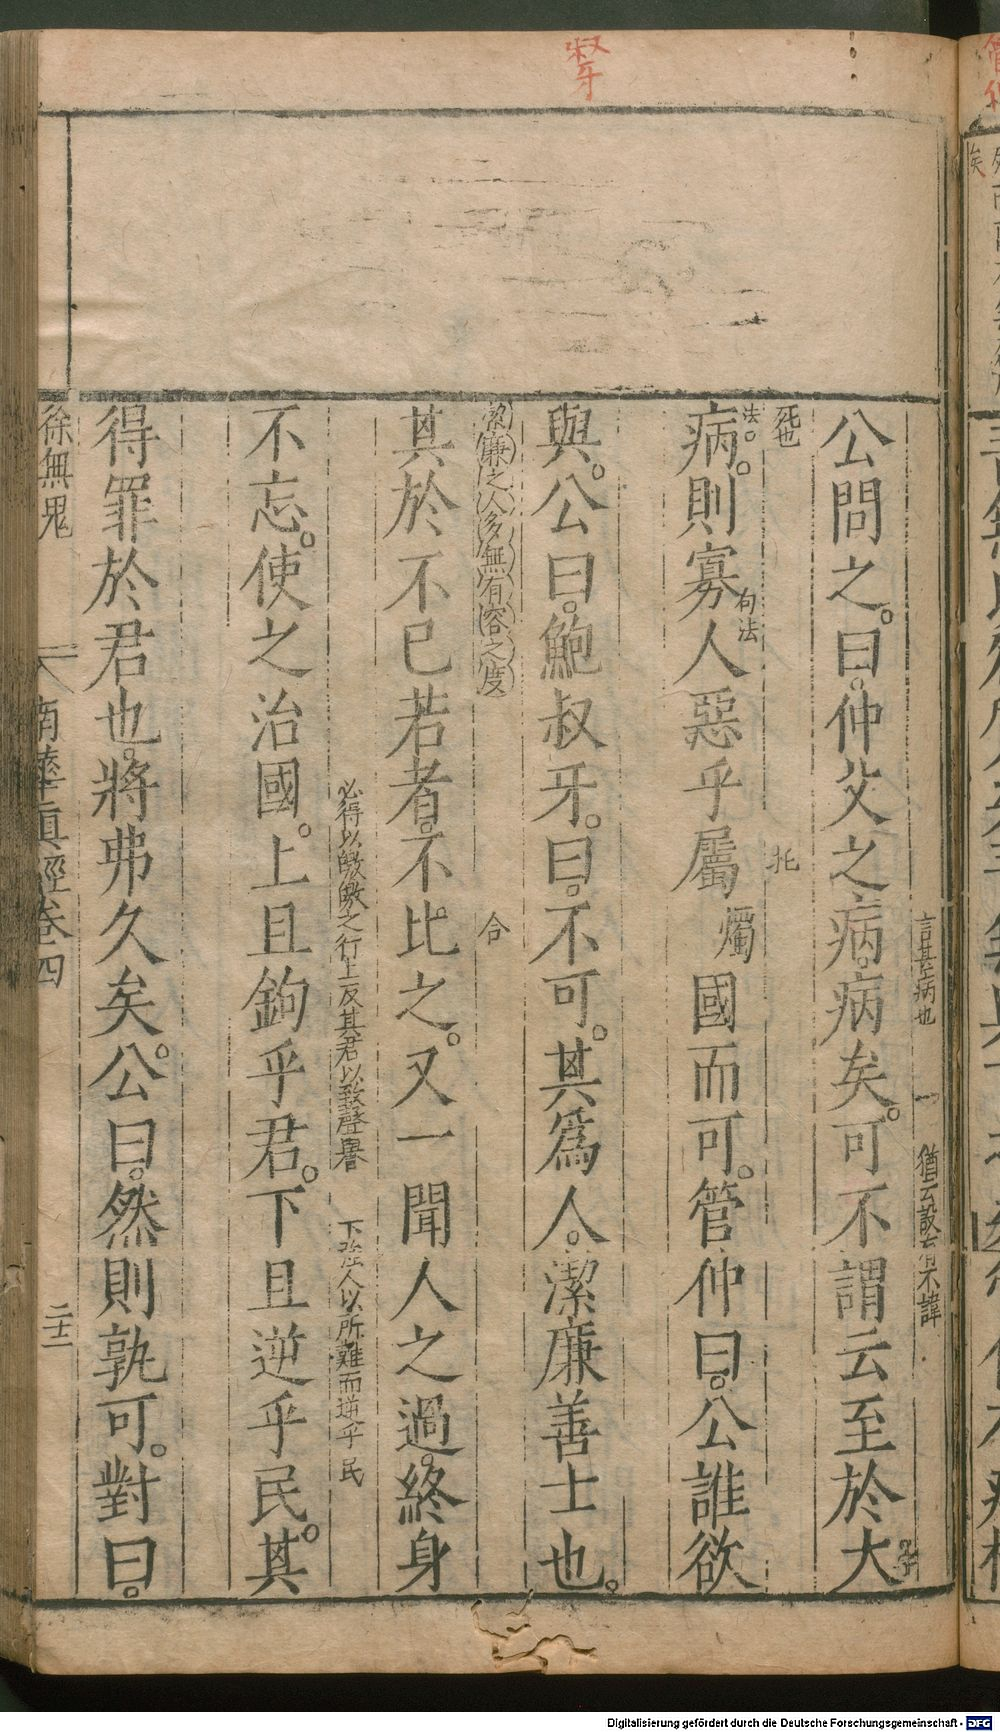 公問之曰仲父之病病矣可不謂云至於大
言其病也
猶云設有不諱
死也
托
病則寡人惡乎屬燭國而可管仲曰公誰欲
法
句法
與公曰鮑叔牙曰不可其為人潔廉善士也
潔廉之人多無有容之度
合
其於不已若者不比之又一聞人之過終身
必得以皦皦之行上反其君以致聲譽
下強人以所難而逆乎民
不忘使之治國上且鉤乎君下且逆乎民其
得罪於君也將弗久矣公曰然則孰可對曰
徐無鬼
南華真經卷四
二十二
Digitalisierung gefördert durch die Deutsche Forschungsgemeinschaft - DFG